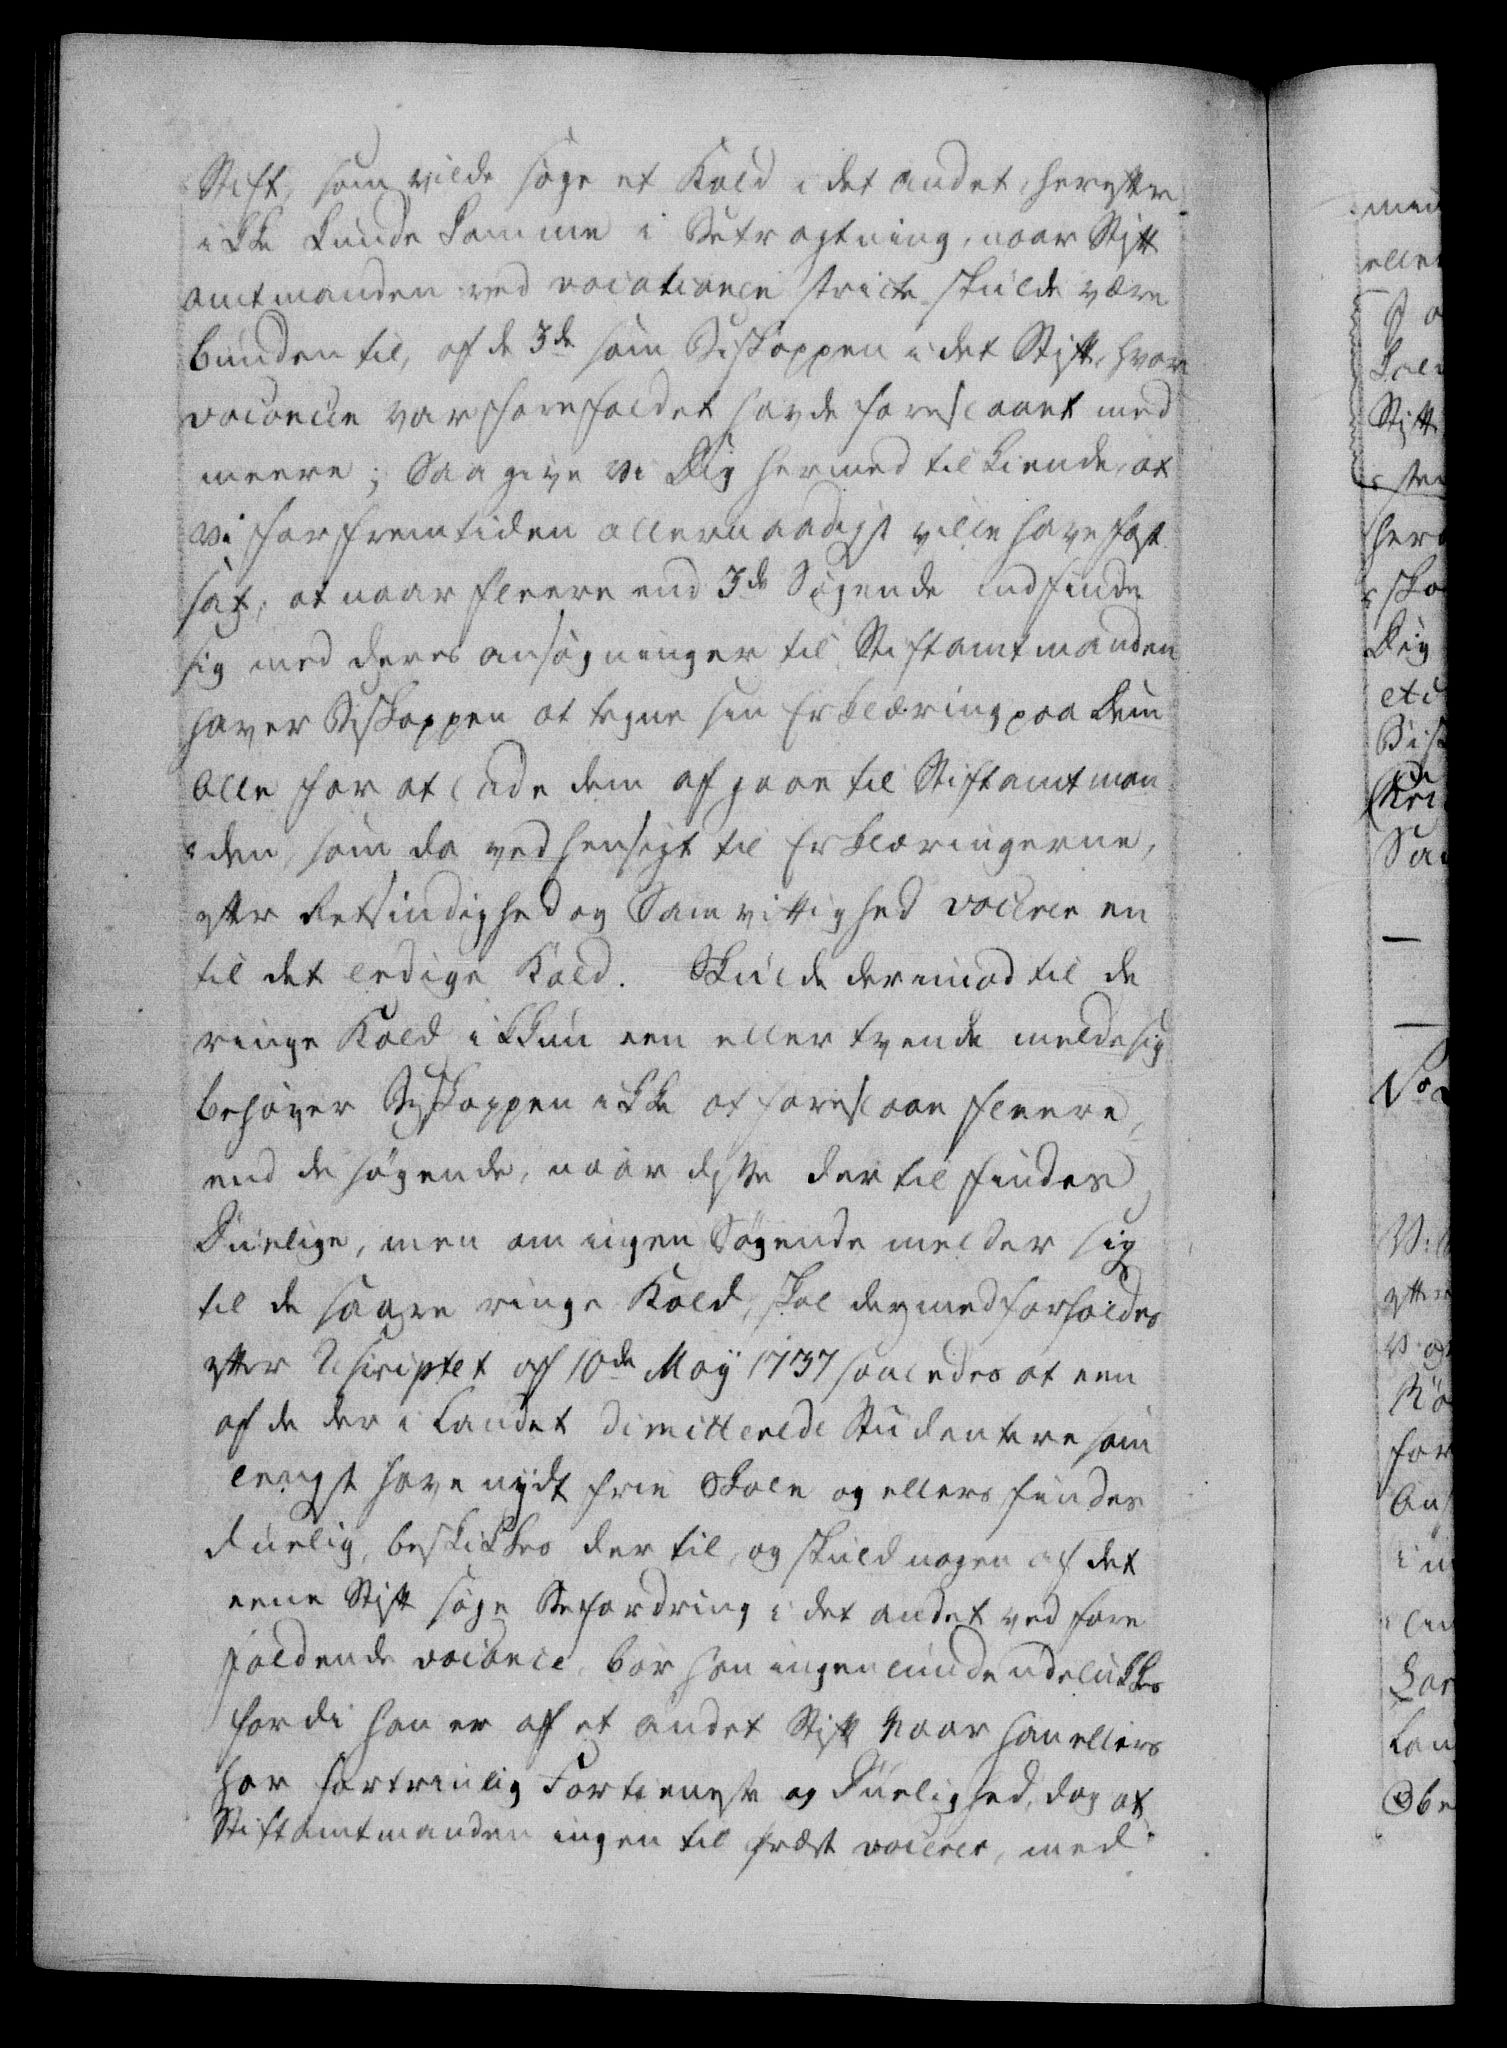 Stift, som vilde søge et Kald i det andet, herefter
ikke kunde komme i Betragtning, naar Stift
amtmanden ved vocationen stricte skulde være
bunden til, af de 3de som Biskoppen i det Stift, hvor
vacancen var forefaldet havde foreslaaet med
meere; Saa give Vi Dig hermed tilkiende, at
Vi for fremtiden allernaadigst ville have fast
sat, at naar fleere end 3de Søgende indfinde
sig med deres ansøgninger til Stiftamtmanden
haver Biskoppen at tegne sin Erklæring paa dem
alle for at lade dem afgaae til Stiftamtman
den, som da ved hensigt til Erklæringerne,
efter Retsindighed og Samvittighed vocerer en
til det ledige Kald. Skulde derimod til de
ringe Kald ikkun een eller tvende melde sig
behøver Biskoppen ikke at foreslaae fleere,
end de søgende, naar disse dertil findes
Duelige, men om ingen Søgende melder sig
til de saare ringe Kald, skal dermed forholdes
efter Rescriptet af 10de Maÿ 1737 saaledes at een
af de der i Landet dimitterede Studentere som
lengst have nÿdt frie Skole og ellers findes
duelig, beskikkes dertil, og skuld nogen af det
eene Stift søge Befordring i det andet ved fore
faldende vacance, bør han ingenlunde udelukkes
fordi han er af et andet Stift Naar han ellers
har fortrinlig Fortieneste og Duelighed, dog at
Stiftamtmanden ingen til Præst vocerer, med